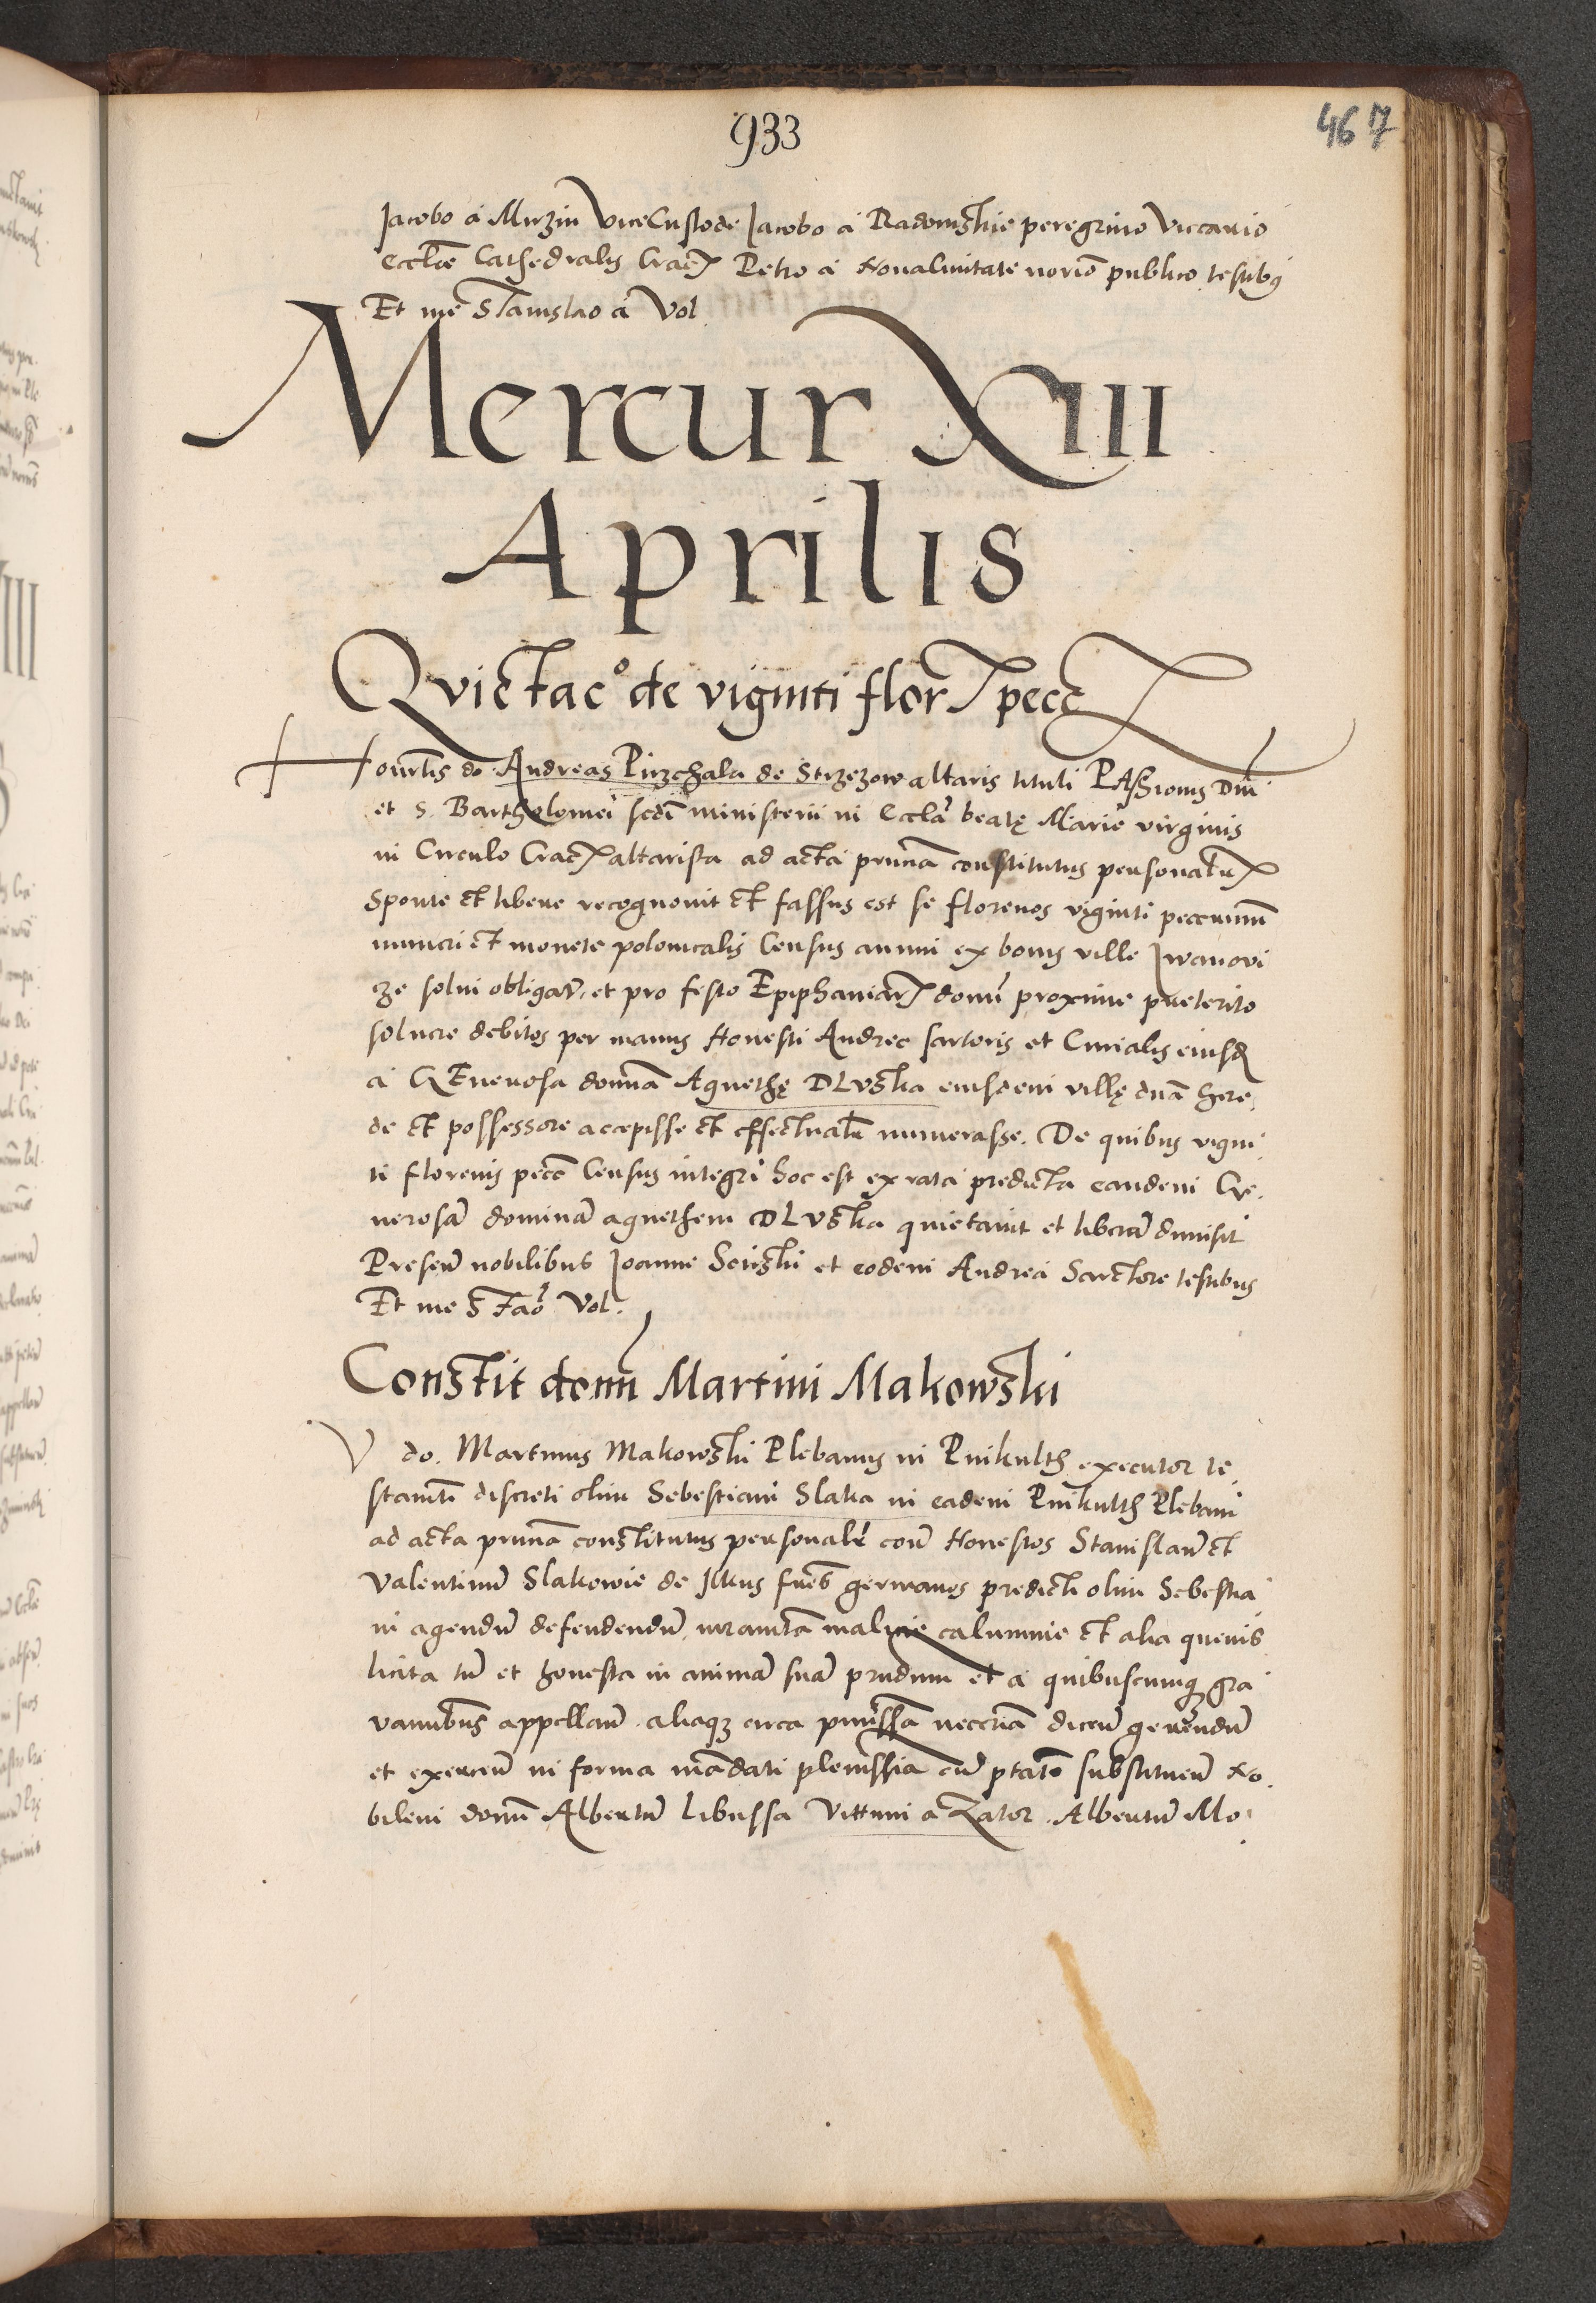 933
467
Jacobo á Mirzin ViceCustode Jacobo á Radomskie peregrino Viccario
Eccl̄ae Cathedralis Crac Petro á Novacivitate norīo publico testibꝰ
Et me Stanislao á Vol
Mercur XIII
Aprilis
Qvictac° de viginti flor pecc
Honrl̄is do. Andreas Pirzchala de Strzezow altaris tituli PAssionis Dnī
et S. Bartholomei scdī ministerii in Eccl̄a beatę Marie virginis
in Circulo Crac altarista ad acta p̄nnā constitutus personalr
Sponte et libere recognovit et fassus est se florenos viginti peccuniar̄
numeri et monete polonicalis Census annui ex bonis ville Jwanovi
ze solvi obligar̄. et pro festo Epiphaniar domī proxime preterito
soluere debitos per manus Honesti Andree sartoris et Curialis eiusd̄
á GEnerosa domnā Agnethę DLvska eiusdem villę dnā here
de et possessore accepisse et effectualr̄ numerasse. De quibus vigin
ti florenis pecc̄ Census integri hoc est ex rata predicta eandem Ge
nerosā dominā agnethem DLvska quietavit et liberā dimisit
Presen̄ nobilibus Joanne et eodem Andrea Sarctore testibus
Et me Stāo Vol.
Constit domī Martini Makowski
V do. Martinus Makowski Plebanus in executor te
stamti discreti olim Sebestiani Slaka in eadem Plebani
ad acta p̄nnā constitutus personalr̄ con̄ Honestos Stanislaū et
Valentinū Slakowie de Jlkus frēs germanos predicti olim Sebestia
ni agendū defendendū, iuramtā malicie calumnie et alia quevis
licita tn̄ et honesta in animā suā et á quibuscumqꝫ gra
vanibus appellan̄. aliaqꝫ circa p̄missa neccriā dicen̄ gerendū
et exercen̄ in forma mādati plenissīa cū ptāte substituen̄ No
bilem domī Albertū Libussa Vittum a Zator. Albertū Mo